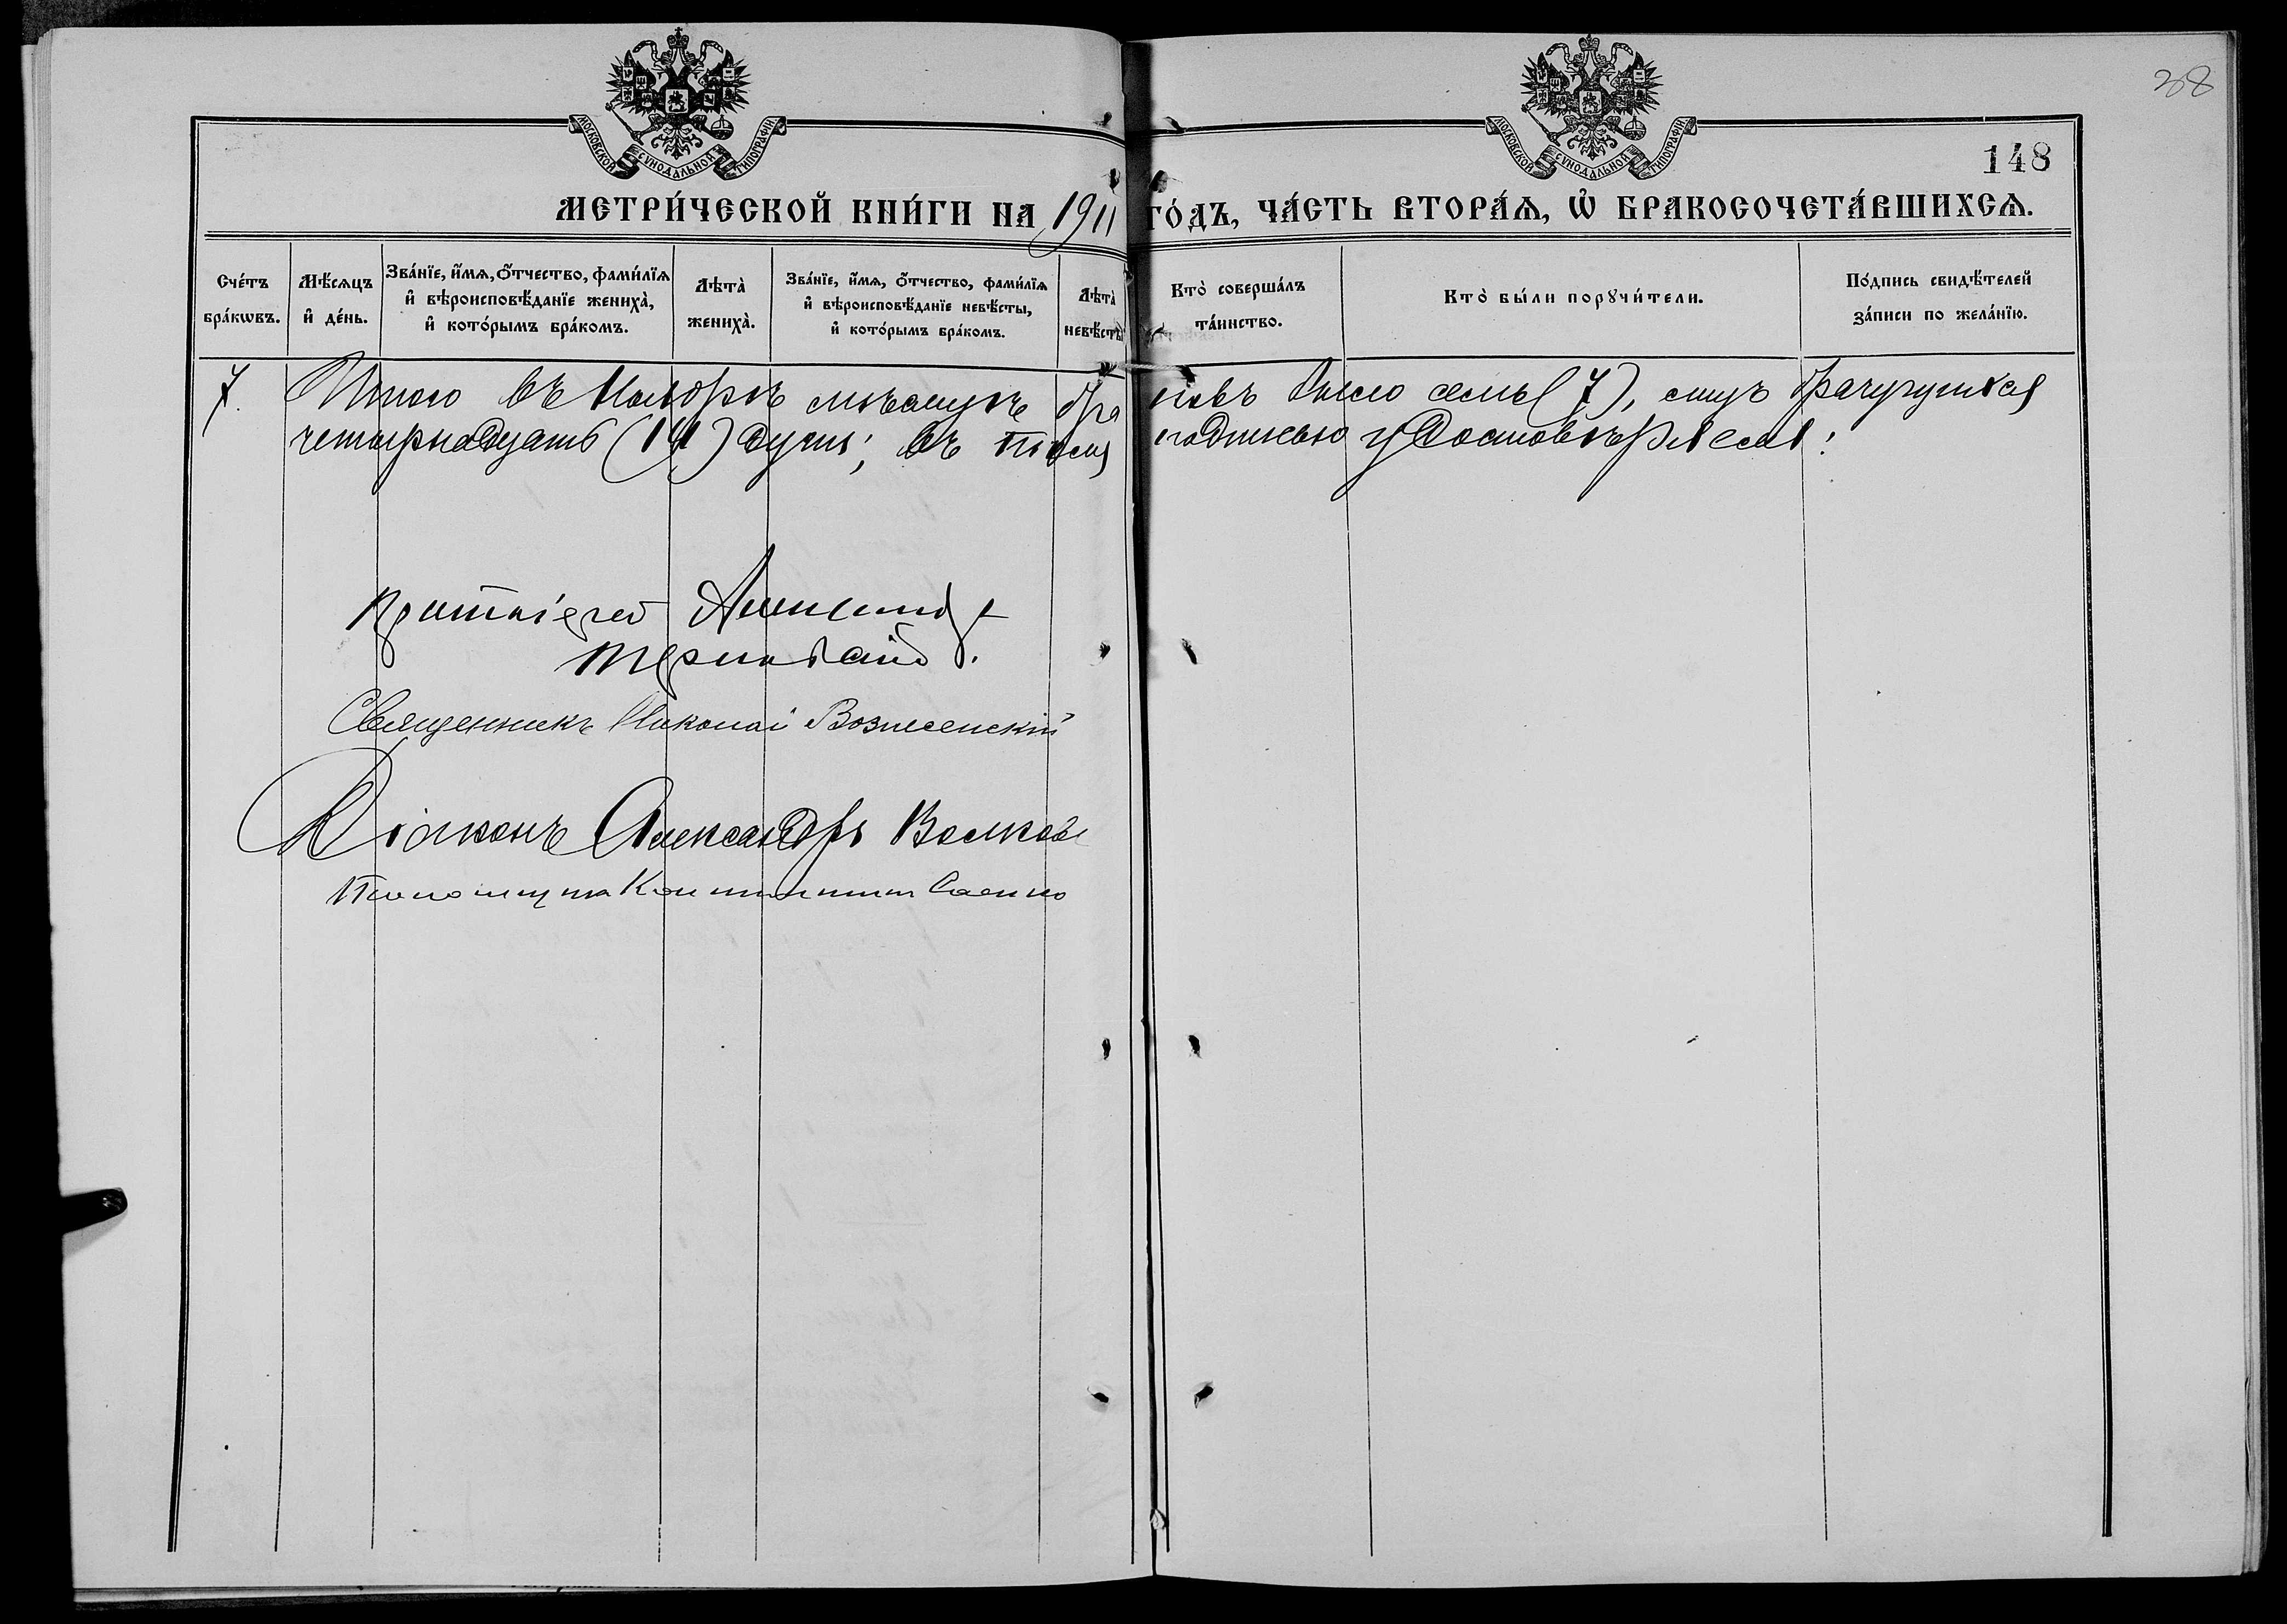 МОСКОВСКОЙ СУНОДАЛЬНОЙ ТИПОГРАФІИ
МОСКОВСКОЙ СУНОДАЛЬНОЙ ТИПОГРАФІИ
38
148
МЕТРИ́ЧЕСКОЙ КНИ́ГИ НА 1911 ГО́ДЪ, ЧА́СТЬ ВТОРА́Ѧ, Ѡ҆ БРАКОСОЧЕТА́ВШИХСѦ.
Сче́тъ бра́кѡвъ.
Мѣ́сѧцъ и҆ де́нь.
Зва́нїе, и҆́мѧ, ѻ҆́тчество, фами́лїѧ и҆ вѣроисповѣ́данїе жениха̀, и҆ кото́рымъ бра́комъ.
Лѣта̀ жениха̀.
Зва́нїе, и҆́мѧ, ѻ҆́тчество, фами́лїѧ и҆ вѣроисповѣ́данїе невѣ́сты, и҆ кото́рымъ бра́комъ.
Лѣта̀ невѣ́сты
Кто̀ соверша́лъ та́инство.
Кто̀ бы́ли порꙋчи́тели.
По́дпись свидѣ́телей за́писи по жела́нїю.
7. Итого въ Ноябрѣ мѣсяцѣ браковъ было семь (7),
четырнадцать (14) душъ; въ подписью удостовѣряемъ:
Протоіерей
Священникъ Николай Вознесенскій
Діаконъ Александръ Волковъ